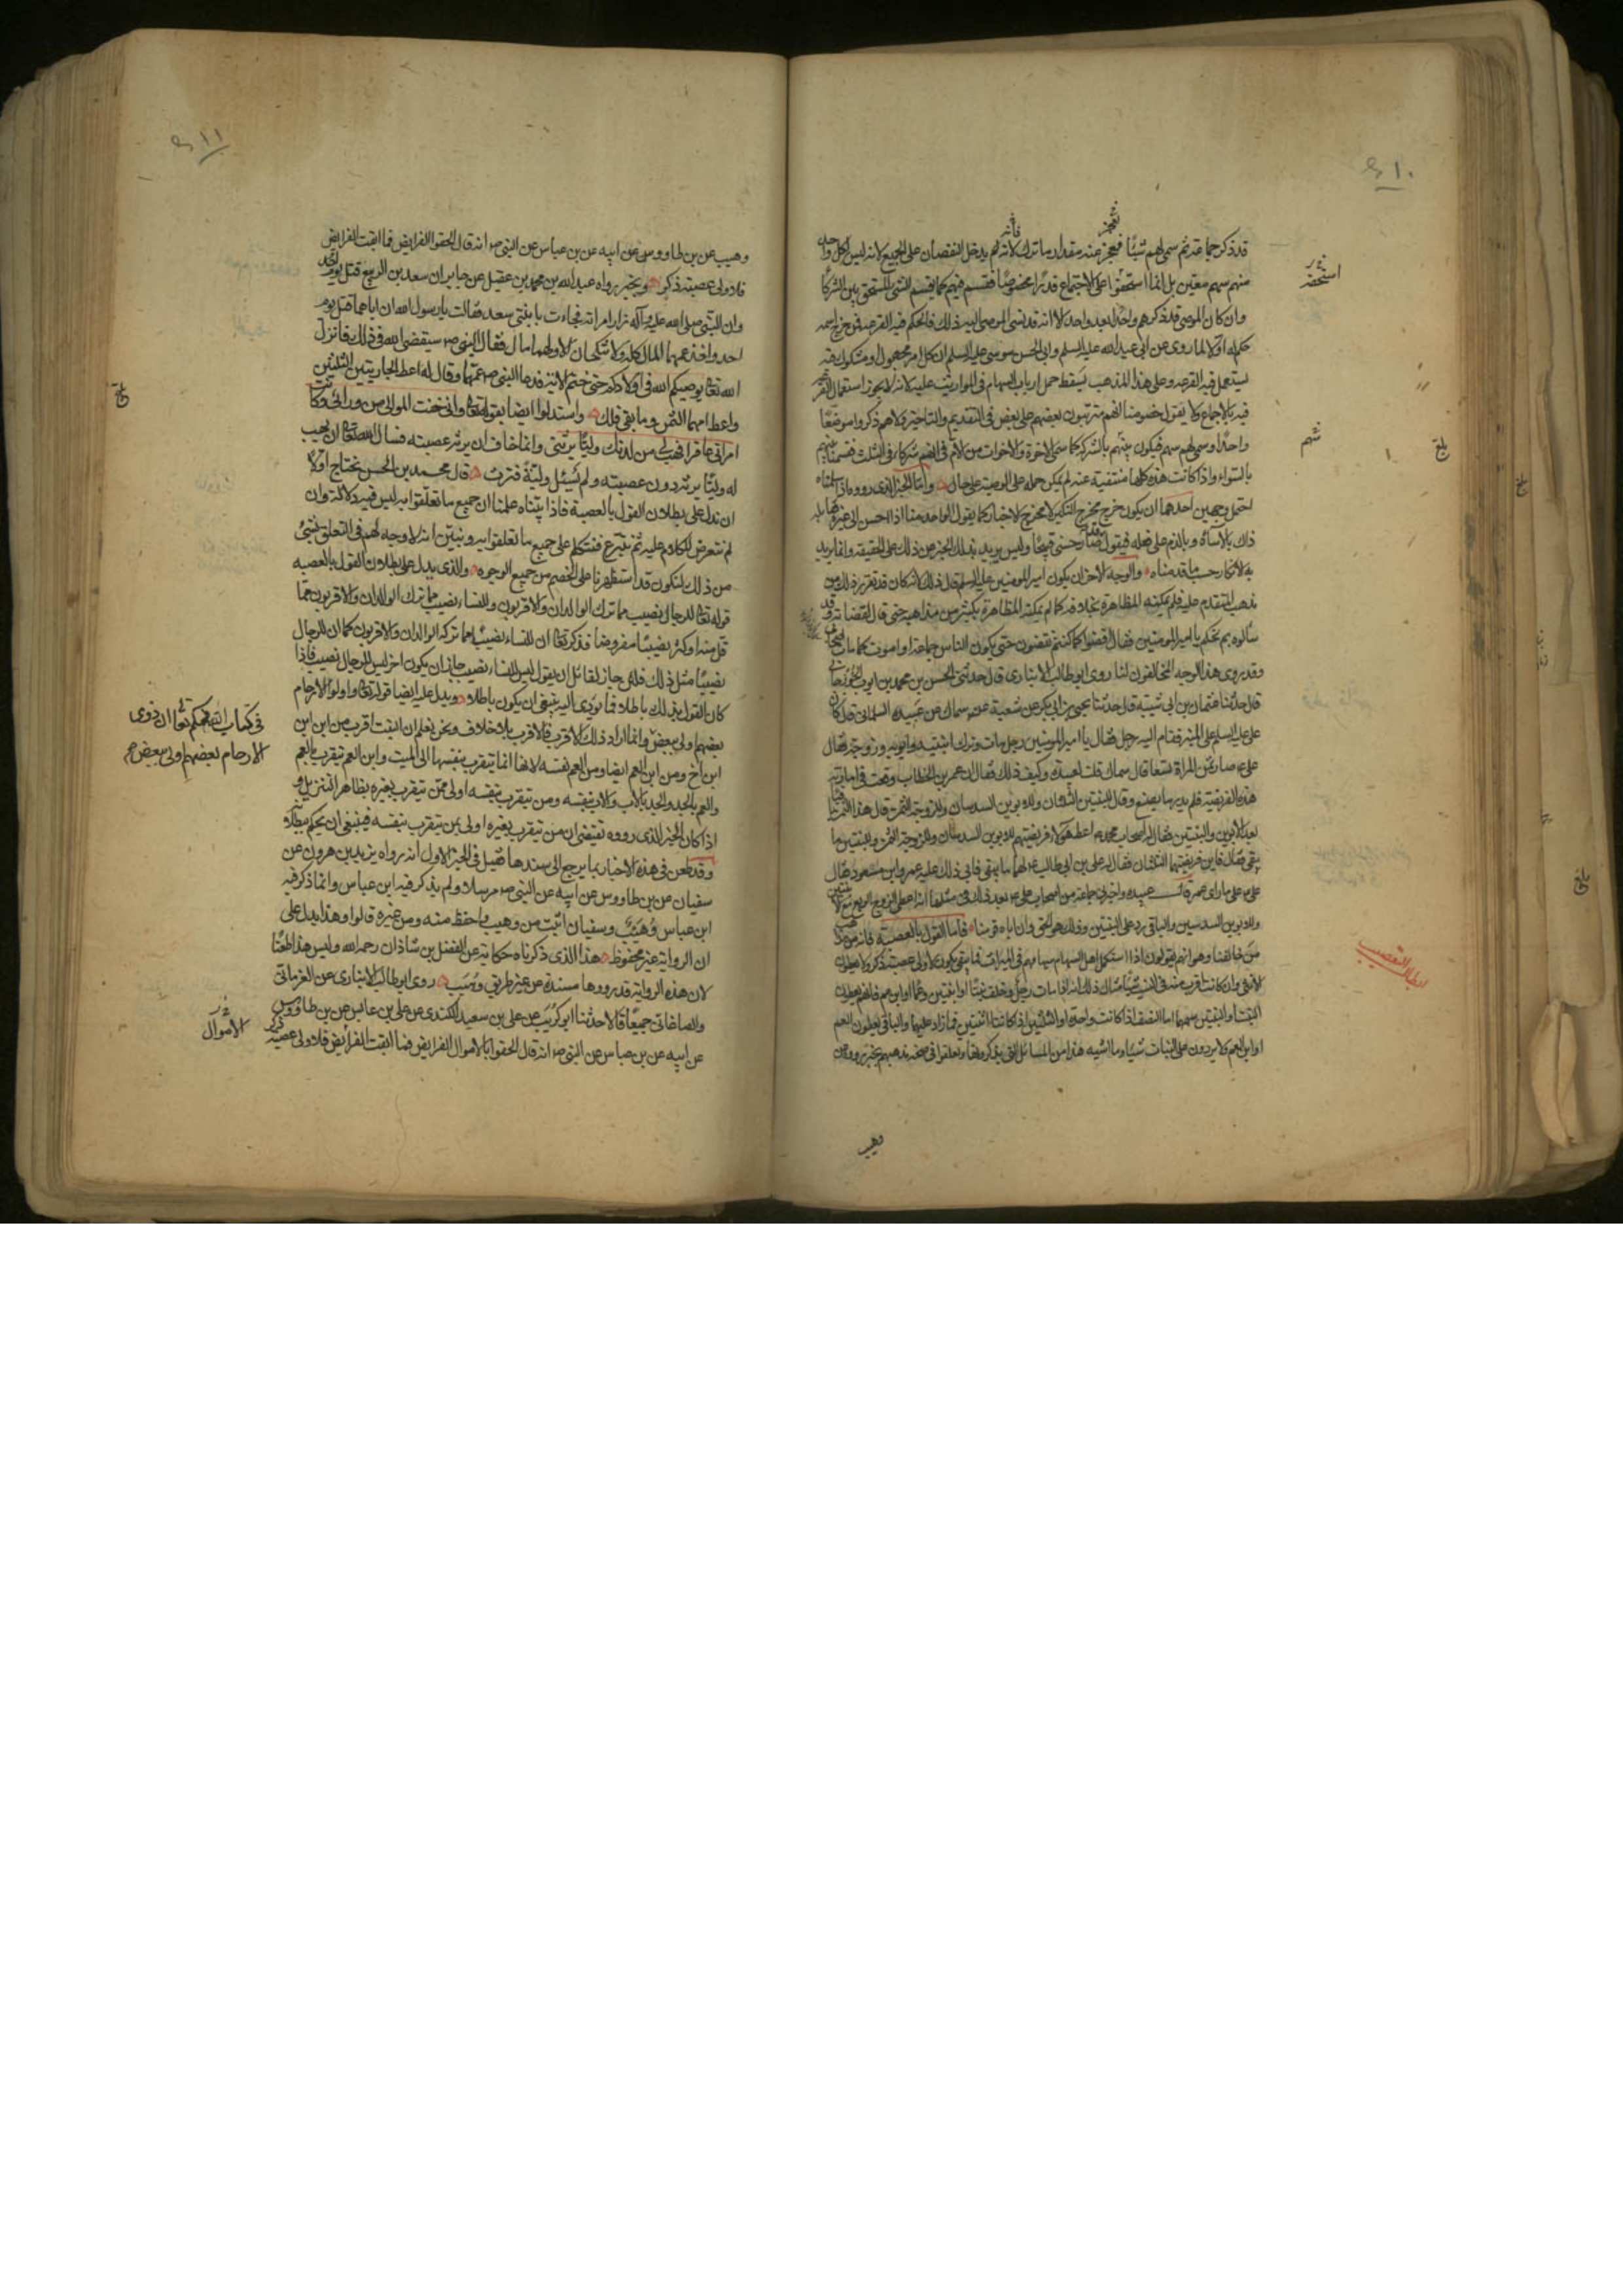 ١٠
قد ذكر جماعة ثم سمى لهم شيئا فعجز عنه مقدار ما ترك لانه لم يدخل النقصان على الجميع لانه ليس لكل واحد
منهم سهم معين بل انما استحقوا على الاجتماع قدرا مخصوصا فقسم فيهم كما يقسم الشئ المستحق بين الشركا
وان كان الموصى قد ذكرهم واحدا بعد واحد الا انه قد نسى الموصى اليه ذلك فالحكم فيه القرعة فمن خرج اسمه
حكم له اولا لما روى عن ابى عبد الله عليه السلم وابى الحسن موسى عليه السلم ان كل امر مجهول او مشكوك فيه
يستعمل فيه القرعه وعلى هذا المذهب يسقط حمل ارباب السهام فى المواريث عليه لانه لا يجوز استعمال القرعه
فيه بالاجماع ولا يقول خصومنا انهم مترتبون بعضهم على بعض فى التقديم والتاخير ولا هم ذكروا موضعا
واحدا وسمى لهم سهم فيكون بينهم بالشركه كما سمى الاخوة والاخوات من الام فى انهم شركاء فى الثلث فقسمنا بينهم
بالسواء واذا كانت هذه كلها منتفية عنه لم يمكن حمله على الوصيه على حال وامّا الخبر الذى رووه
احتمل وجهين احدهما ان يكون خرج مخرج النكير لا مخرج الاخبار كما يقول الواحد منا اذا احسن الى غيره
ذلك بالاساة وبالذم على فعله فيقول قد صار حسنى قبيحا وليس يريد بذلك الخبر عن ذلك على الحقيقة وانما يريد
به الانكار حسب ما قدمناه والوجه الاخر ان يكون امير المومنين عليه السلم قال ذلك لانه كان قد تقرر ذلك من
مذهب المتقدم عليه فلم يمكنه المظاهرة بخلافه كما لم يمكنه المظاهرة بكثير من مذاهبه حتى قال لقضاته وقد
سالوه بم نحكم يا امير المومنين فقال اقضوا كما كنتم تقضون حتى يكون الناس جماعة او اموت كما مات اصحابى
وقد روى هذا الوجه المخالفون لنا روى ابو طالب الانبارى قال حدثنى الحسن بن محمد بن ايوب الجوزجانى
قال حدثنا عثمان بن ابى شيبة قال حدثنا يحيى بن ابى بكر عن شعبة عن سماك عن عبيده السلمانى قال كان
على عليه السلم على المنبر فقام اليه رجل فقال يا امير المومنين رجل مات وترك ابنتيه وابويه وزوجة فقال
على ع صار ثمن المراة تسعا قال سماك قلت لعبيدة وكيف ذلك فقال ان عمر بن الخطاب وقعت فى امارته
هذه الفريضة فلم يدر ما يصنع وقال للبنتين الثلثان وللابوين السدسان وللزوجة الثمن قال هذا الثمن باقيا
بعد الابوين والبنتين فقال له اصحاب محمد ص اعط هولاء فريضتهم للابوين السدسان وللزوجة الثمن وللبنتين ما
يبقى فقال فاين فريضتهما الثلثان فقال له على بن ابى طالب ع لهما ما يبقى فابى ذلك عليه عمر وابن مسعود فقال
على ع على ما راى عمر قال عبيده واخبرنى جماعة من اصحاب على ع بعد ذلك فى مثلها انه اعطى الزوج الربع مع الابنتين
وللابوين السدسين والباقى رد على البنتين وذلك هو الحق وان اباه قومنا فاما القول بالعصبة فانه
من خالفنا وهو انهم يقولون اذا استكمل اهل السهام سهامهم فى الميراث فما يبقى يكون لاولى عصبة ذكر ولا يعطون
الانثى وان كانت اقرب منه فى النسب شيئا مثال ذلك انه اذا مات رجل وخلف بنتا او ابنتين وعما او ابن عم فانهم يعطون
البنت او البنتين سهمهما اما النصف اذا كانت واحدة او الثلثين اذا كانتا اثنتين فما زاد عليهما والباقى يعطون العم
او ابن العم ولا يردون على البنات شيئا وما اشبه هذا من المسائل التى يذكرونها وتعلقوا فى صحة مذهبهم بخبر رووه عن
وهيب
استحقه
سهم
بلغ
ابطال التعصيب
١١
وهيب عن بن طاووس عن ابيه عن بن عباس عن النبى ص انه قال الحقوا الفرايض فما ابقت الفرايض
فلاولى عصبة ذكر وبخبر رواه عبد الله بن محمد بن عقيل عن جابر ان سعد بن الربيع قتل يوم احد
وان النبى صلى الله عليه وآله زار امراته فجاءت بابنتى سعد فقالت يا رسول الله ان اباهما قتل يوم
احد واخذ عمهما المال كله ولا تنكحان الا ولهما مال فقال النبى ص سيقضى الله فى ذلك فانزل
الله تعالى يوصيكم الله فى اولادكم حتى ختم الاية فدعا النبى ص عمهما وقال له اعط الجاريتين الثلثين
واعط امهما الثمن وما بقى فلك واستدلوا ايضا بقوله تعالى وانى خفت الموالى من ورائى وكانت
امراتى عاقرا فهب لى من لدنك وليا يرثنى وانما خاف ان يرثه عصبته فسال الله تعالى ان يهب
له وليا يرثه دون عصبته ولم يسئل ولية فترث قال محمد بن الحسن نحتاج اولا
ان ندل على بطلان القول بالعصبة فاذا بيناه علمنا ان جميع ما تعلقوا به ليس فيه دلالة وان
لم نتعرض للكلام عليه ثم نتبرع فنتكلم على جميع ما تعلقوا به ونبين انه لا وجه لهم فى التعلق بشئ
من ذلك لنكون قد استظهرنا على الخصم من جميع الوجوه والذى يدل على بطلان القول بالعصبه
قوله تعالى للرجال نصيب مما ترك الوالدان والاقربون وللنساء نصيب مما ترك الوالدان والاقربون مما
قل منه او كثر نصيبا مفروضا فذكر تعالى ان للنساء نصيبا مما تركه الوالدان والاقربون كما ان للرجال
نصيبا مثل ذلك فلئن جاز لقائل ان يقول ليس للنساء نصيب جاز ان يكون اخر ليس للرجال نصيب فاذا
كان القول بذلك باطلا فما يودى اليه ينبغى ان يكون باطلا ويدل عليه ايضا قوله تعالى واولوا الارحام
بعضهم اولى ببعض وانما اراد ذلك الاقرب فالاقرب بلا خلاف ونحن نعلم ان البنت اقرب من ابن ابن
ابن اخ ومن ابن العم ايضا ومن العم نفسه لانها انما تتقرب بنفسها الى الميت وابن العم يتقرب بالعم
والعم بالجد والجد بالاب والاب بنفسه ومن يتقرب بنفسه اولى ممن يتقرب بغيره بظاهر التنزيل و
اذا كان الخبر الذى رووه يقتضى ان من يتقرب بغيره اولى ممن يتقرب بنفسه فينبغى ان يحكم ببطلانه
وقد طعن فى هذه الاخبار بما يرجع الى سندها فقيل فى الخبر الاول انه رواه يزيد بن هرون عن
سفيان عن بن طاووس عن ابيه عن النبى ص مرسلا ولم يذكر فيه ابن عباس وانما ذكر فيه
ابن عباس وهيب وسفيان اثبت من وهيب واحفظ منه ومن غيره قالوا وهذا يدل على
ان الرواية غير محفوظ هذا الذى ذكرناه حكاية عن الفضل بن شاذان رحمه الله وليس هذا طعنا
لان هذه الرواية قد رووها مسندة من غير طريق وهيب روى ابو طالب الانبارى عن الفرياتى
والصاغانى جميعا قالا حدثنا ابو كريب عن على بن سعيد الكندى عن على بن عابس عن بن طاووس
عن ابيه عن بن عباس عن النبى ص انه قال الحقوا بالاموال الفرايض فما ابقت الفرائض فلاولى عصبة ذكر
بلغ
فى كتاب الله
الارحام بعضهم اولى ببعض
الاموال